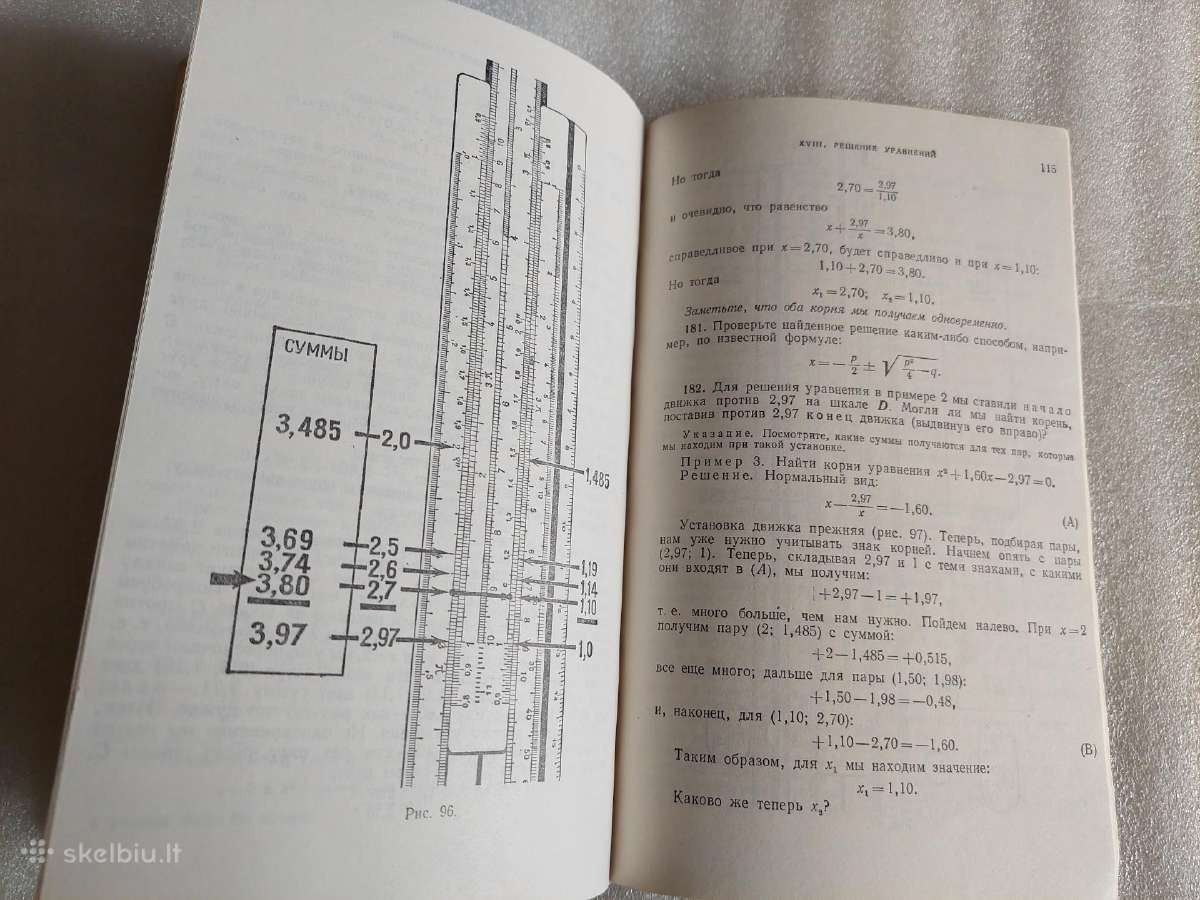 СУММЫ
3,485 2,0
1,485
3,69 2,5
3,74 2,6
3,80 2,7
3,97 2,97
1,19
1,14
1,10
1,0
Рис. 96.
XVIII. РЕШЕНИЕ УРАВНЕНИЙ 115
Но тогда
2,70 = 2,97/1,10
и очевидно, что равенство
x + 2,97/x = 3,80,
справедливое при x = 2,70, будет справедливо и при x = 1,10:
1,10 + 2,70 = 3,80.
Но тогда
x₁ = 2,70; x₂ = 1,10.
Заметьте, что оба корня мы получаем одновременно.
181. Проверьте найденное решение каким-либо способом, напри-
мер, по известной формуле:
x = − p/2 ± √(p²/4 − q).
182. Для решения уравнения в примере 2 мы ставили начало
движка против 2,97 на шкале D. Могли ли мы найти корень,
поставив против 2,97 конец движка (выдвинув его вправо)?
Указание. Посмотрите, какие суммы получаются для тех пар, которые
мы находим при такой установке.
Пример 3. Найти корни уравнения x² + 1,60x − 2,97 = 0.
Решение. Нормальный вид:
x − 2,97/x = −1,60. (A)
Установка движка прежняя (рис. 97). Теперь, подбирая пары,
нам уже нужно учитывать знак корней. Начнем опять с пары
(2,97; 1). Теперь, складывая 2,97 и 1 с теми знаками, с какими
они входят в (A), мы получим:
+2,97 − 1 = +1,97,
т. е. много больше, чем нам нужно. Пойдем налево. При x = 2
получим пару (2; 1,485) с суммой:
+2 − 1,485 = +0,515,
все еще много; дальше для пары (1,50; 1,98):
+1,50 − 1,98 = −0,48,
и, наконец, для (1,10; 2,70):
+1,10 − 2,70 = −1,60. (B)
Таким образом, для x₁ мы находим значение:
x₁ = 1,10.
Каково же теперь x₂?
skelbiu.lt